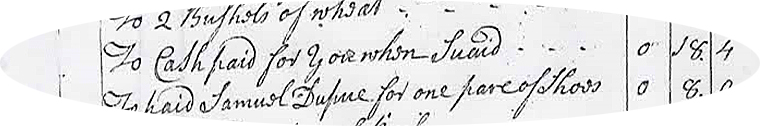 To 2 Bushels of wheat - - -
To Cash paid for you when Sucid - - - - 0 18. 4
To paid Samuel Dupue for one pare of Shoos 0 8.